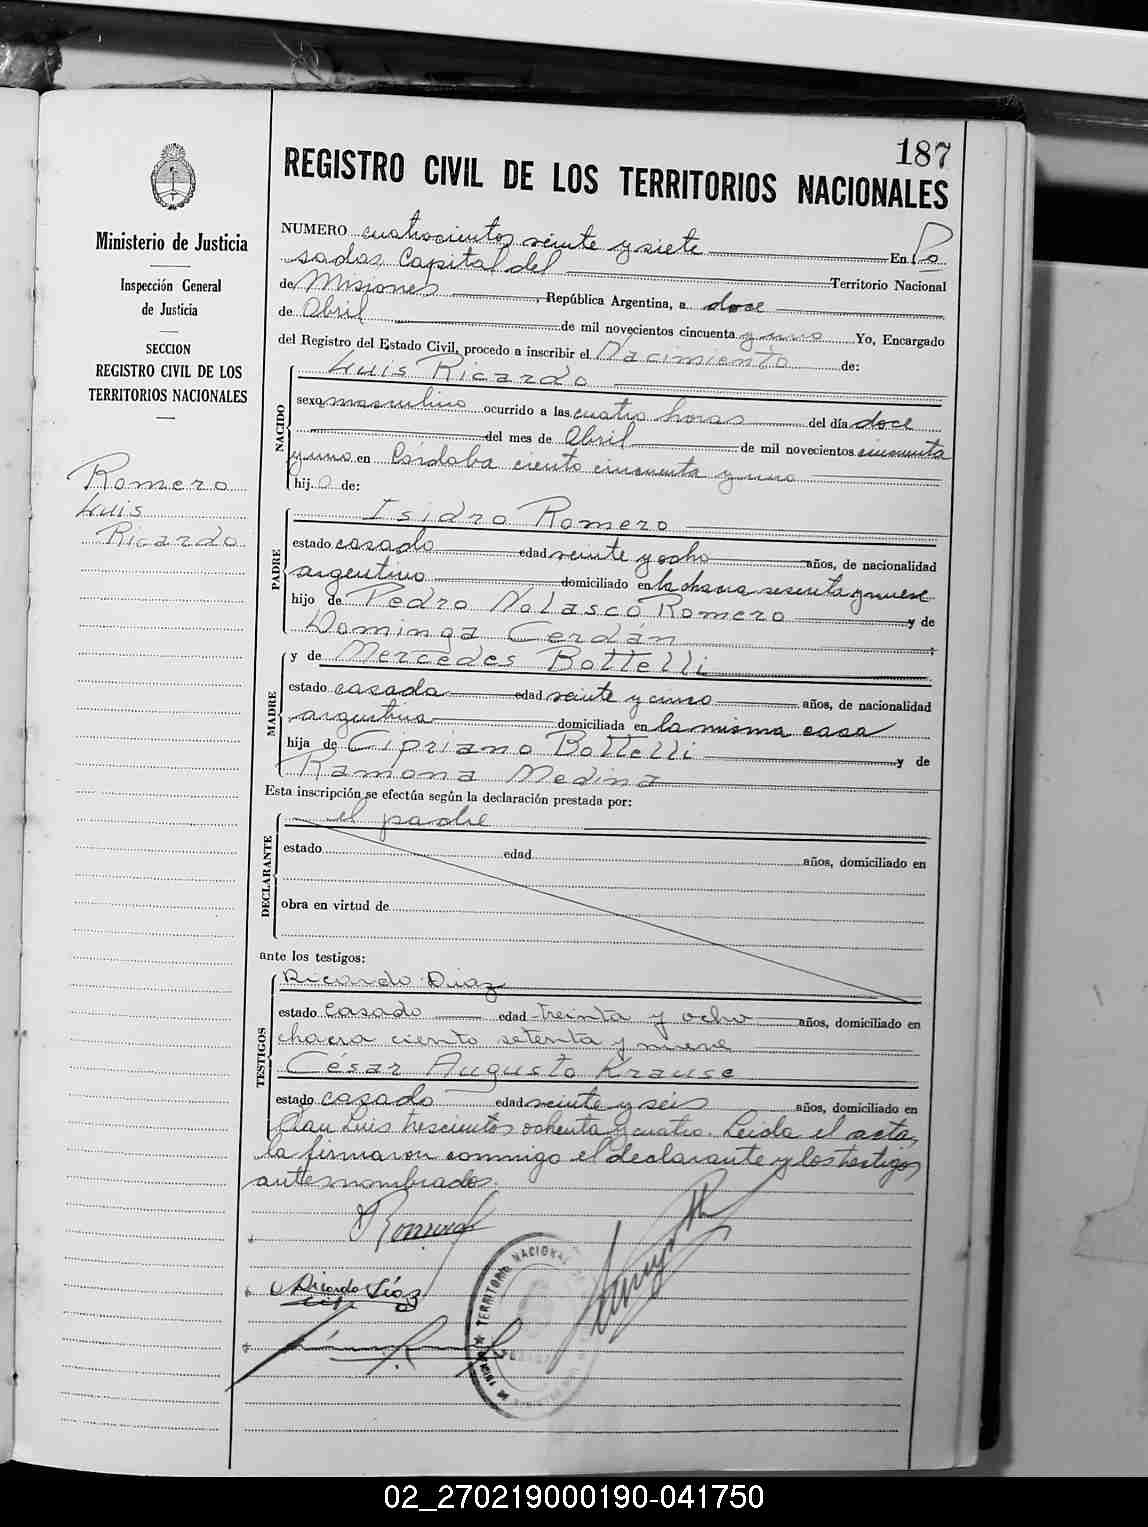 187
REGISTRO CIVIL DE LOS TERRITORIOS NACIONALES
Ministerio de Justicia
Inspección General
de Justicia
SECCION
REGISTRO CIVIL DE LOS
TERRITORIOS NACIONALES
Romero
Luis
Ricardo
NUMERO cuatrocientos veinte y siete En Po
sadas Capital del Territorio Nacional
de Misiones, República Argentina, a doce
de Abril de mil novecientos cincuenta y uno Yo, Encargado
del Registro del Estado Civil, procedo a inscribir el Nacimiento de:
NACIDO
Luis Ricardo
sexo masculino ocurrido a las cuatro horas del día doce
del mes de Abril de mil novecientos cincuenta
y uno en Córdoba ciento cincuenta y uno
hijo de:
PADRE
Isidro Romero
estado casado edad veinte y ocho años, de nacionalidad
argentino domiciliado en la chacra sesenta y nueve
hijo de Pedro Nolasco Romero y de
Dominga Cerdán
MADRE
y de Mercedes Bottelli
estado casada edad veinte y cinco años, de nacionalidad
argentina domiciliada en la misma casa
hija de Cipriano Bottelli y de
Ramona Medina
Esta inscripción se efectúa según la declaración prestada por:
DECLARANTE
el padre
estado edad años, domiciliado en
obra en virtud de
ante los testigos:
TESTIGOS
Ricardo Diaz
estado casado edad treinta y ocho años, domiciliado en
chacra ciento setenta y nueve
César Augusto Krause
estado casado edad veinte y seis años, domiciliado en
San Luis trescientos ochenta y cuatro. Leida el acta,
la firmaron conmigo el declarante y los testigos
antes nombrados.
Romero
Ricardo Díaz
TERRITORIO NACIONAL
02_270219000190-041750